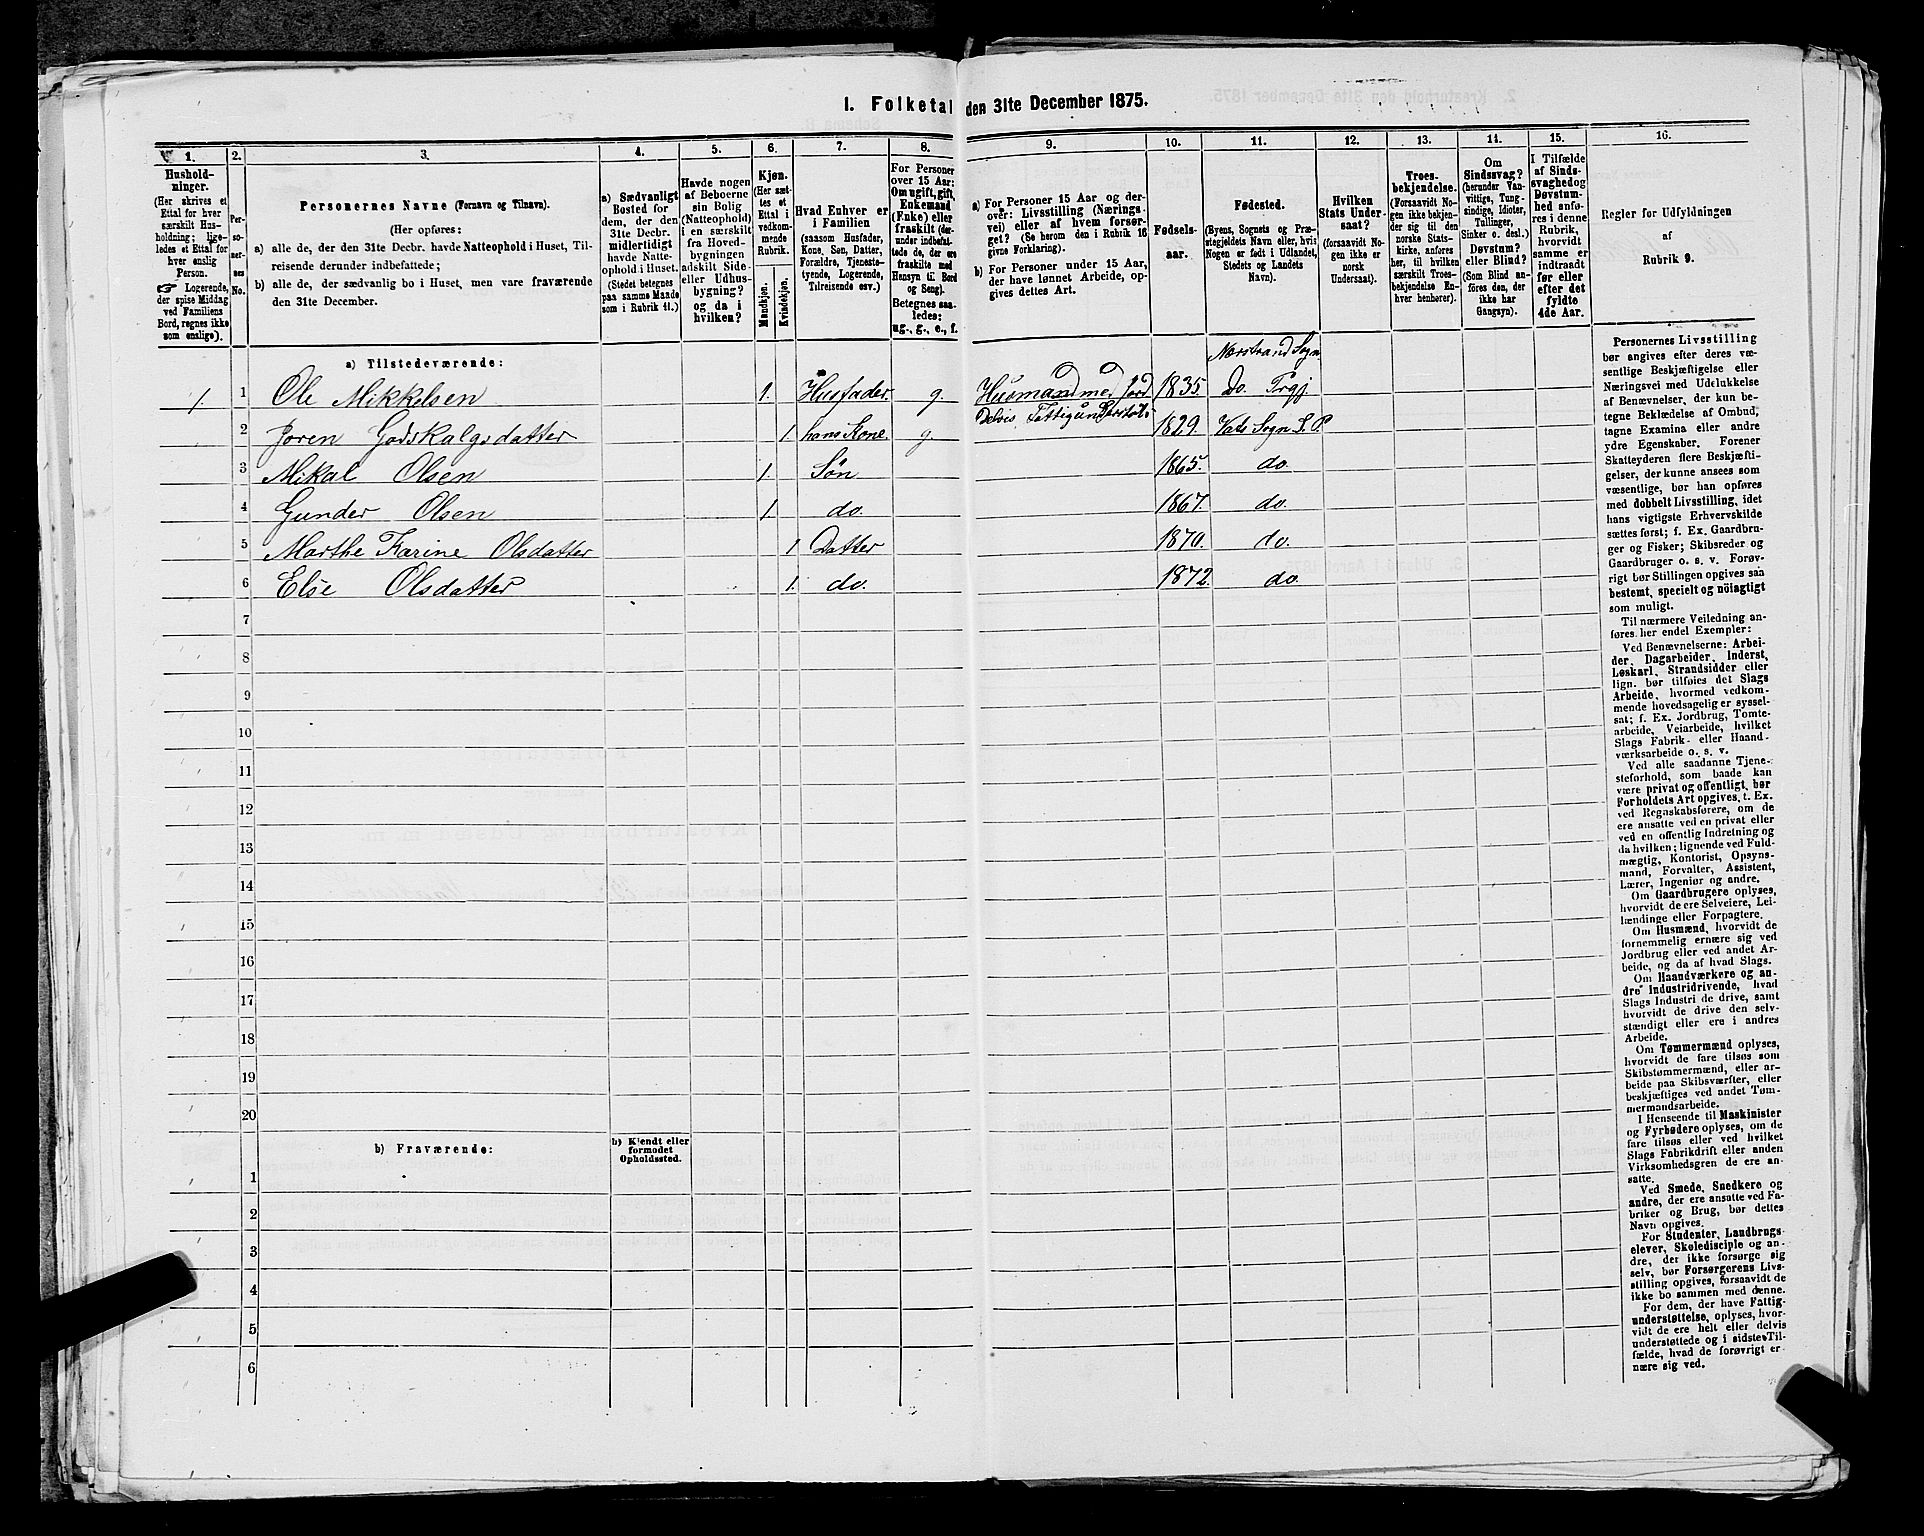 1. Folketal den 31te December 1875.
1.
Hushold-
ninger.
(Her skrives et
Ettal for hver
særskilt Hus-
holdning; lige-
ledes et Ettal for
hver enslig
Person.
☞ Logerende,
der spise Middag
ved Familiens
Bord, regnes ikke
som enslige).
2.
Per-
so-
ner-
nes
No.
3.
Personernes Navne (Fornavn og Tilnavn).
(Her opføres:
a) alle de, der den 31te Decbr. havde Natteophold i Huset, Til-
reisende derunder indbefattede;
b) alle de, der sædvanlig bo i Huset, men vare fraværende
den 31te December.
4.
a) Sædvanligt
Bosted for
dem, der den
31te Decbr.
midlertidigt
havde Natte-
ophold i Huset.
(Stedet betegnes
paa samme Maade
som i Rubrik 11.)
5.
Havde nogen
af Beboerne
sin Bolig
(Natteophold)
i en særskilt
fra Hoved-
bygningen
adskilt Side-
eller Udhus-
bygning?
og da i
hvilken?
6.
Kjøn.
(Her sæt-
tes et
Ettal i
vedkom-
mende
Rubrik.
Mandkjøn.
Kvindekjøn.
7.
Hvad Enhver er
i Familien
(saasom Husfader,
Kone, Søn, Datter,
Forældre, Tjeneste-
tyende, Logerende,
Tilreisende osv.)
8.
For Personer
over 15 Aar:
Om ugift, gift,
Enkemand
(Enke) eller
fraskilt (der-
under indbefat-
tede de, der ere
fraskilte med
Hensyn til Bord
og Seng).
Betegnes saa-
ledes:
ug., g., e., f.
9.
a) For Personer 15 Aar og der-
over: Livsstilling (Nærings-
vei) eller af hvem forsør-
get? (Se herom den i Rubrik 16
givne Forklaring).
b) For Personer under 15 Aar,
der have lønnet Arbeide, op-
gives dettes Art.
10.
Fødsels-
aar.
11.
Fødested.
(Byens, Sognets og Præ-
stegjeldets Navn eller, hvis
Nogen er født i Udlandet,
Stedets og Landets
Navn).
12.
Hvilken
Stats Under-
saat?
(forsaavidt No-
gen ikke er
norsk
Undersaat).
13.
Troes-
bekjendelse.
(Forsaavidt No-
gen ikke bekjen-
der sig til den
norske Stats-
kirke, anføres
her, til hvilken
særskilt Troes-
bekjendelse En-
hver henhører).
14.
Om
Sindssvag?
(herunder Van-
vittige, Tung-
sindige, Idioter,
Tullinger,
Sinker o. desl.)
Døvstum?
eller Blind?
(Som Blind an-
føres den, der
ikke har
Gangsyn).
15.
I Tilfælde
af Sinds-
svaghed og
Døvstum-
hed anfø-
res i denne
Rubrik,
hvorvidt
samme er
indtraadt
før eller
efter det
fyldte
4de Aar.
16.
Regler for Udfyldningen
af
Rubrik 9.
a) Tilstedeværende:
Norstrand Sogn
1. 1 Ole Mikkelsen 1. Husfader g. Husmand med Jord 1835. Do. Prgj.
Delvis Fattigunderstøt
2 Joren Godskalgsdatter 1. hans Kone. g. 1829. Vats Sogn S. P.
3 Mikal Olsen 1. Søn 1865. do.
4 Gunder Olsen 1. do. 1867. do.
5 Marthe Karine Olsdatter 1 Datter 1870. do.
6 Else Olsdatter 1. do. 1872. do.
7
8
9
10
11
12
13
14
15
16
17
18
19
20
b) Fraværende:
b) Kjendt eller
formodet
Opholdssted.
1
2
3
4
5
6
Personernes Livsstilling
bør angives efter deres væ-
sentlige Beskjæftigelse eller
Næringsvei med Udelukkelse
af Benævnelser, der kun be-
tegne Beklædelse af Ombud,
tagne Examina eller andre
ydre Egenskaber. Forener
Skatteyderen flere Beskjæfti-
gelser, der kunne ansees som
væsentlige, bør han opføres
med dobbelt Livsstilling, idet
hans vigtigste Erhvervskilde
sættes først; f. Ex. Gaardbru-
ger og Fisker; Skibsreder og
Gaardbruger o. s. v. Forøv-
rigt bør Stillingen opgives saa
bestemt, specielt og nöiagtigt
som muligt.
Til nærmere Veiledning an-
føres her endel Exempler:
Ved Benævnelserne: Arbei-
der, Dagarbeider, Inderst,
Løskarl, Strandsidder eller
lign. bør tilføies det Slags
Arbeide, hvormed vedkom-
mende hovedsagelig er syssel-
sat; f. Ex. Jordbrug, Tomte-
arbeide, Veiarbeide, hvilket
Slags Fabrik- eller Haand-
værksarbeide o. s. v.
Ved alle saadanne Tjene-
steforhold, som baade kan
være privat og offentligt, bør
Forholdets Art opgives, t. Ex.
ved Regnskabsførere, om de
ere ansatte ved en privat eller
ved en offentlig Indretning og
da hvilken; lignende ved Fuld-
mægtig, Kontorist, Opsyns-
mand, Forvalter, Assistent,
Lærer, Ingeniør og andre.
Om Gaardbrugere oplyses,
hvorvidt de ere Selveiere, Lei-
lændinge eller Forpagtere.
Om Husmænd, hvorvidt de
fornemmelig ernære sig ved
Jordbrug eller ved andet Ar-
beide, og da af hvad Slags.
Om Haandværkere og an-
dre Industridrivende, hvad
Slags Industri de drive, samt
hvorvidt de drive den selv-
stændigt eller ere i andres
Arbeide.
Om Tømmermænd oplyses,
hvorvidt de fare tilsøs som
Skibstømmermænd, eller ar-
beide paa Skibsværfter, eller
beskjæftiges ved andet Tøm-
mermandsarbeide.
I Henseende til Maskinister
og Fyrbødere oplyses, om de
fare tilsøs eller ved hvilket
Slags Fabrikdrift eller anden
Virksomhedsgren de ere an-
satte.
Ved Smede, Snedkere og
andre, der ere ansatte ved Fa-
briker og Brug, bør dettes
Navn opgives.
For Studenter, Landbrugs-
elever, Skoledisciple og an-
dre, der ikke forsørge sig
selv, bør Forsørgerens Livs-
stilling opgives, forsaavidt de
ikke bo sammen med denne.
For dem, der have Fattig-
understøttelse, oplyses, hvor-
vidt de ere helt eller delvis
understøttede og i sidste Til-
fælde, hvad de forøvrigt er-
nære sig ved.